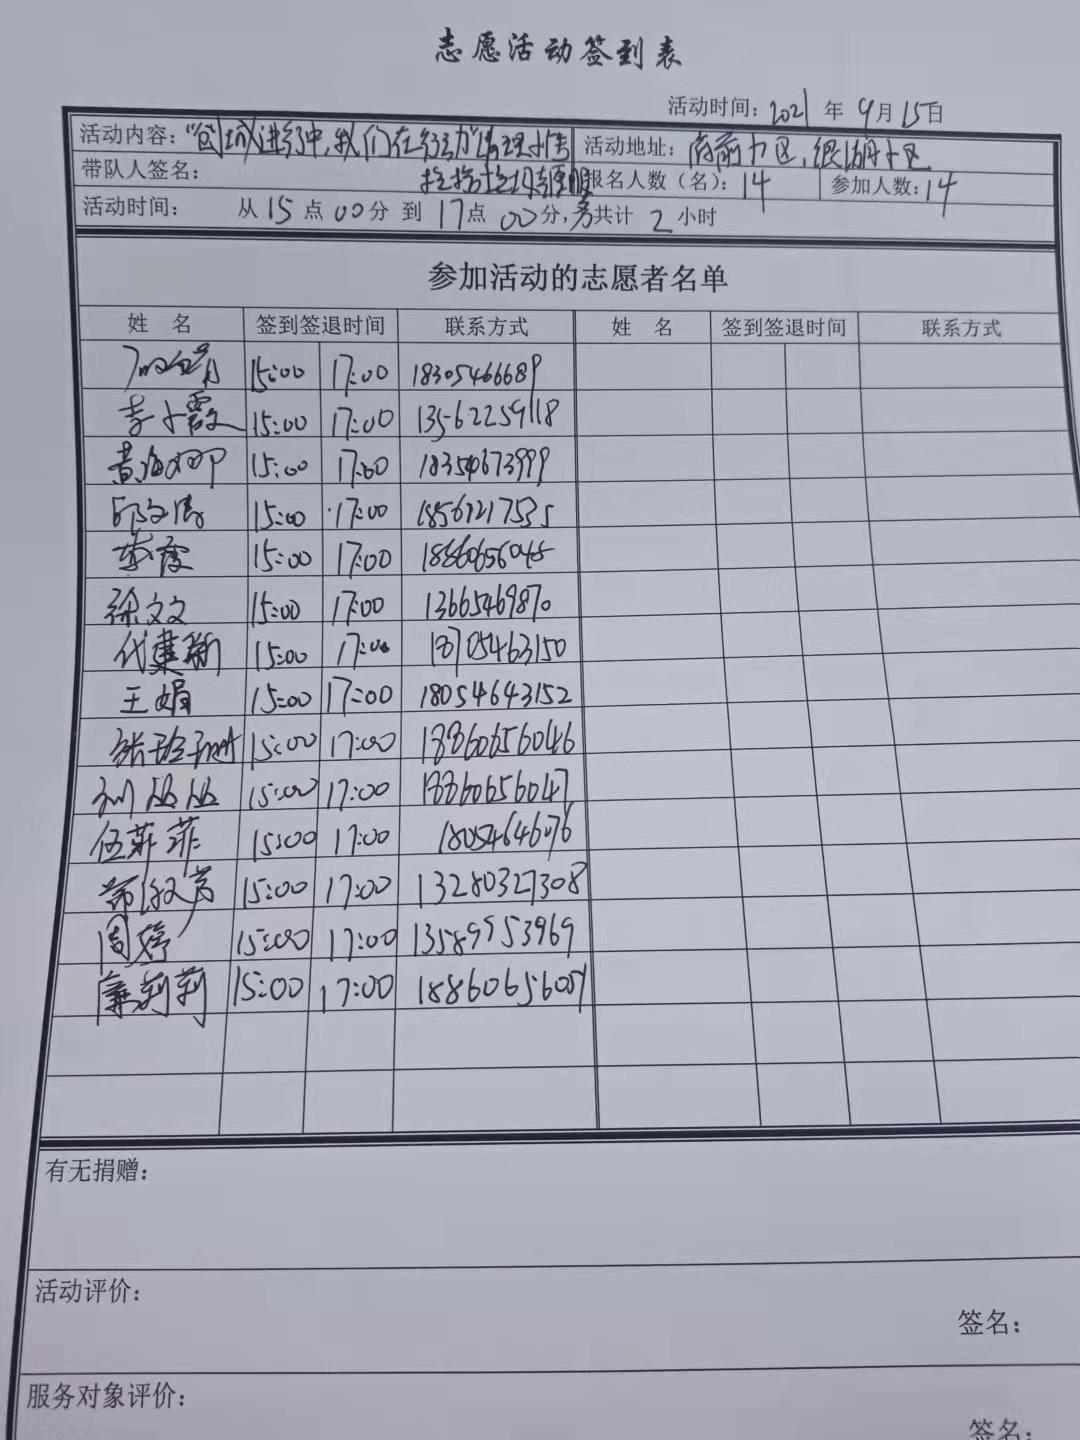 志愿活动签到表
活动时间：2021 年 9月 15日
活动内容：“创城进行中，我们在行动”清理小传 活动地址：府前小区，银湖小区
带队人签名： 报名人数（名）：14 参加人数：14
活动时间： 从 15 点 00分 到 17点 00分，务共计 2 小时
参加活动的志愿者名单
姓 名 签到签退时间 联系方式 姓 名 签到签退时间 联系方式
15:00 17:00 18305466689
李小霞 15:00 17:00 13562259118
黄海娜 15:00 17:00 18354673999
邱文涛 15:00 17:00 18561217535
李霞 15:00 17:00 18860656048
徐文文 15:00 17:00 13665469870
代建新 15:00 17:00 18705463150
王娟 15:00 17:00 18054643152
张玲珊 15:00 17:00 18860656046
刘丛丛 15:00 17:00 18860656047
伍菲菲 15:00 17:00 18054646076
15:00 17:00 13280327308
周婷 15:00 17:00 13589953969
莉莉 15:00 17:00
有无捐赠：
活动评价：
签名：
服务对象评价：
签名：